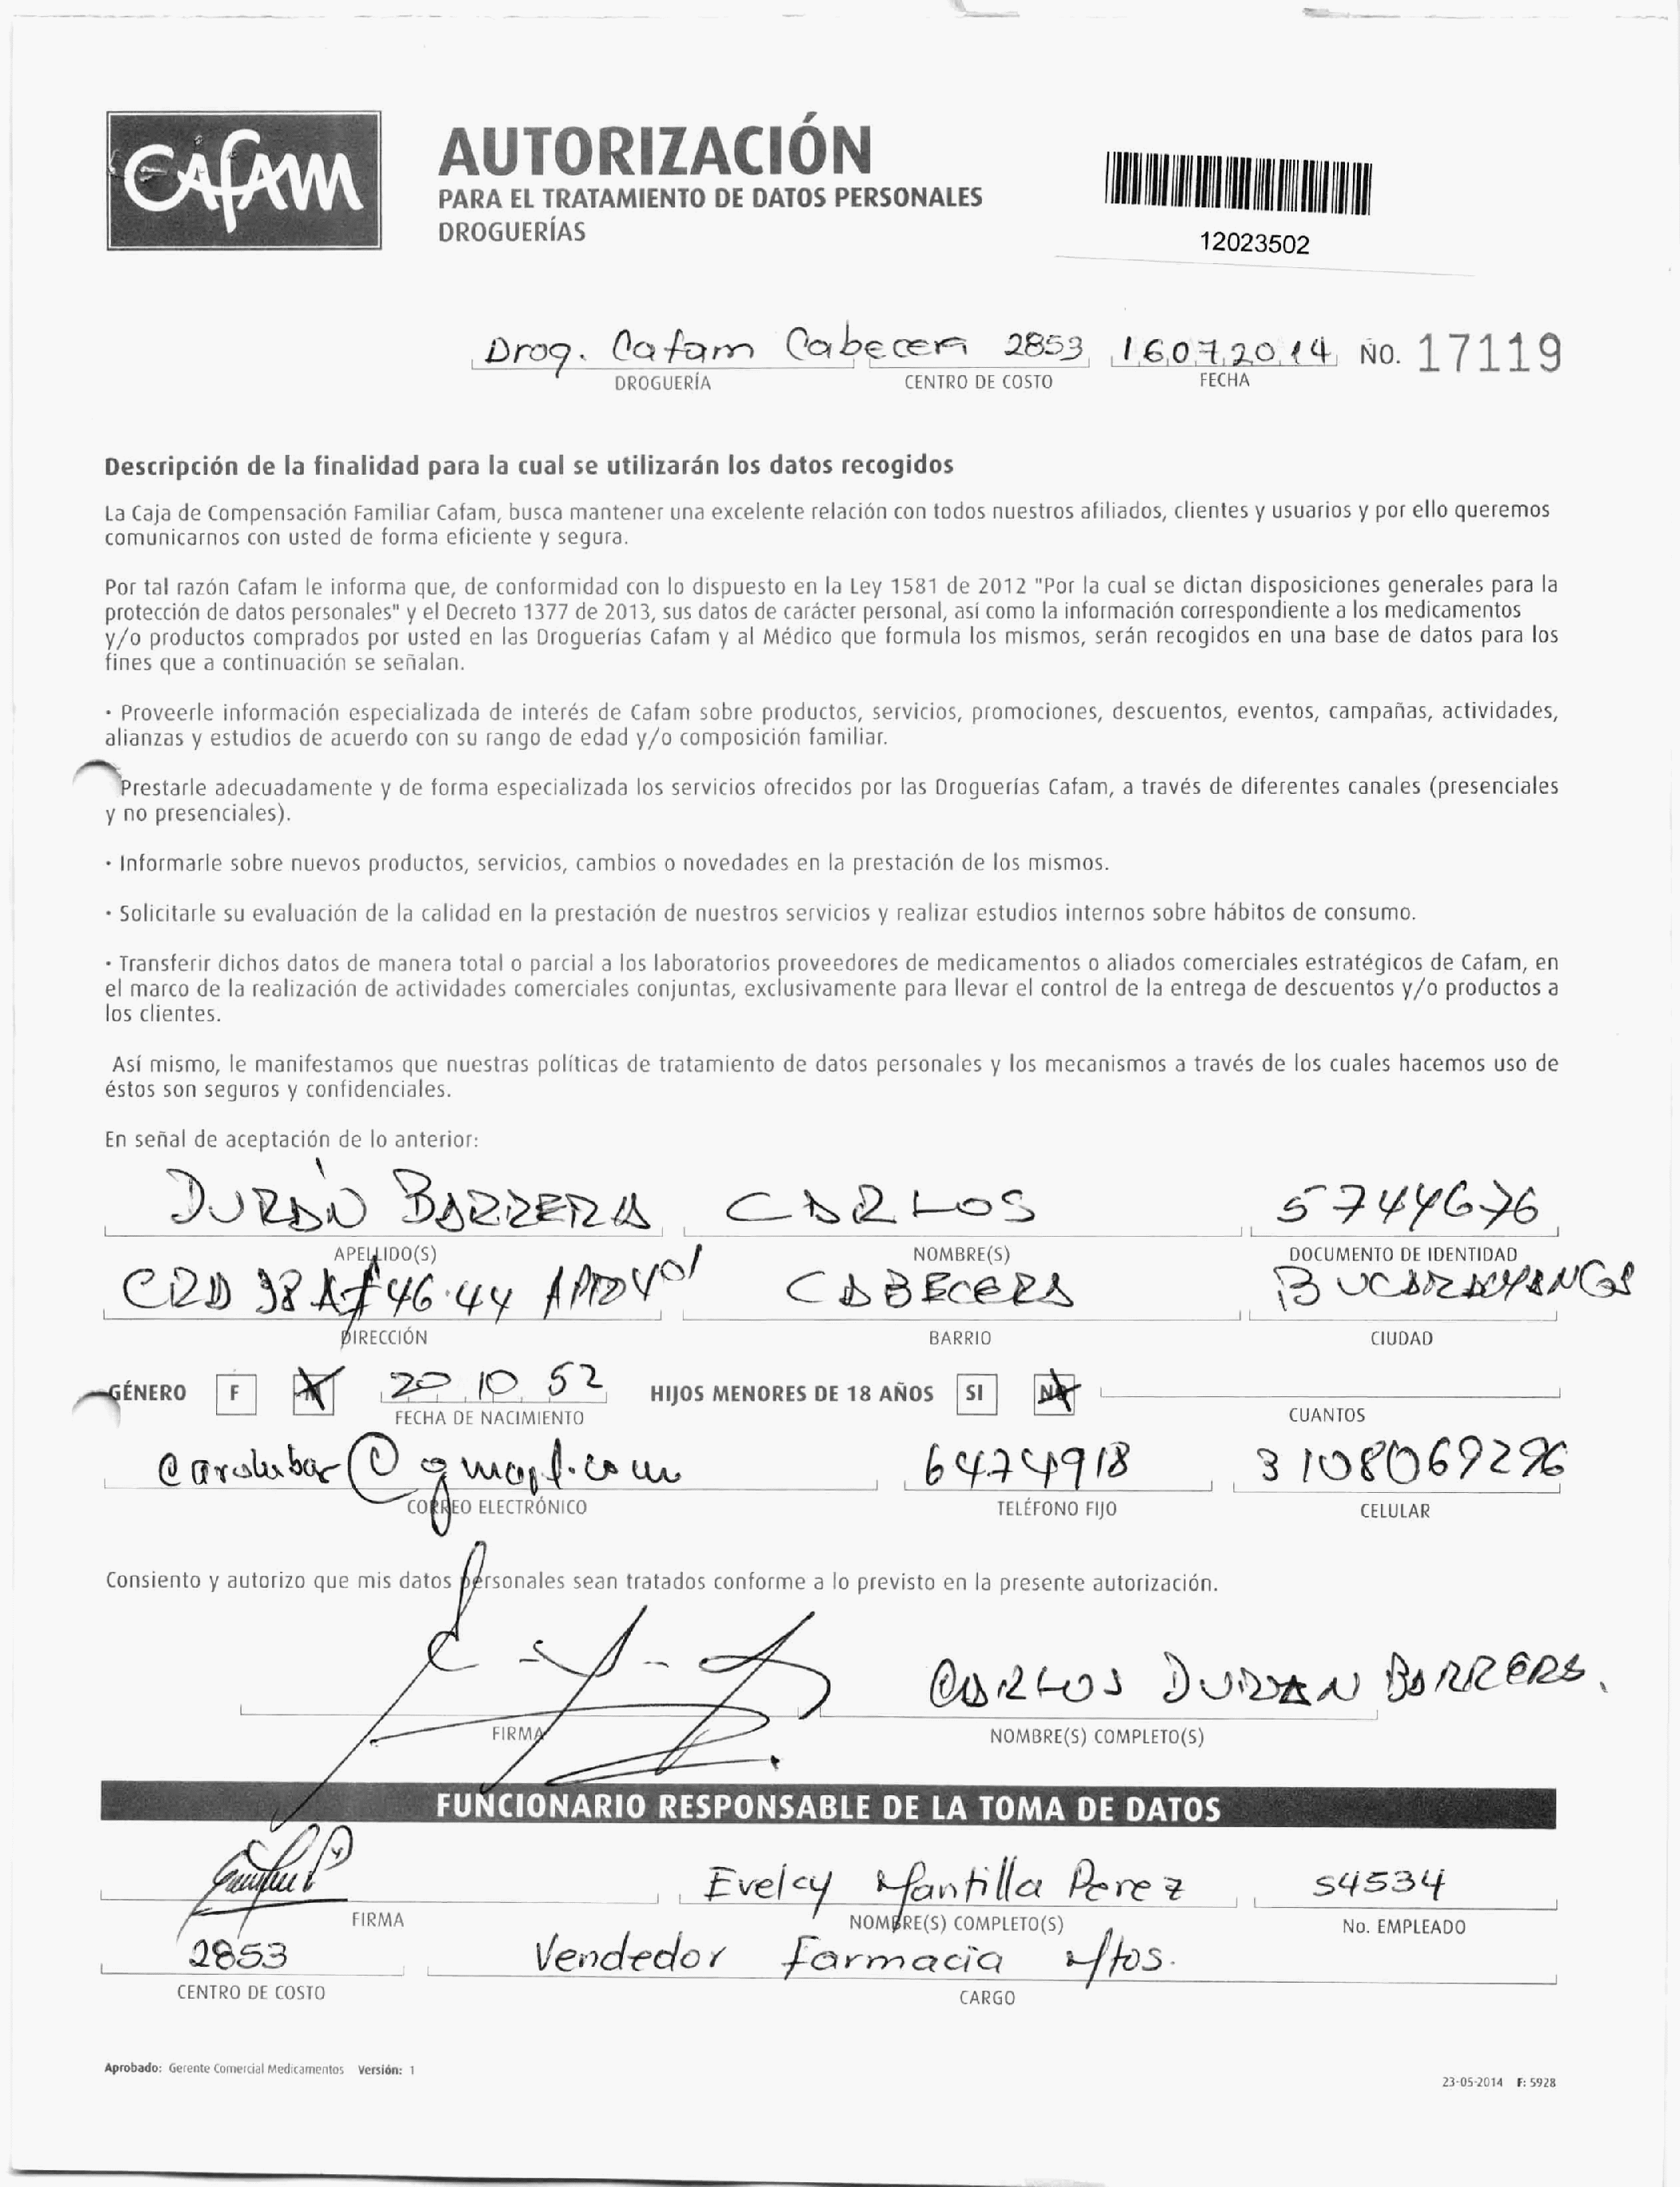 Cafam
AUTORIZACIÓN
PARA EL TRATAMIENTO DE DATOS PERSONALES
DROGUERÍAS
12023502
Drog. Cafam Cabecera 2853 16072014 No. 17119
DROGUERÍA CENTRO DE COSTO FECHA
Descripción de la finalidad para la cual se utilizarán los datos recogidos
La Caja de Compensación Familiar Cafam, busca mantener una excelente relación con todos nuestros afiliados, clientes y usuarios y por ello queremos
comunicarnos con usted de forma eficiente y segura.
Por tal razón Cafam le informa que, de conformidad con lo dispuesto en la Ley 1581 de 2012 "Por la cual se dictan disposiciones generales para la
protección de datos personales" y el Decreto 1377 de 2013, sus datos de carácter personal, así como la información correspondiente a los medicamentos
y/o productos comprados por usted en las Droguerías Cafam y al Médico que formula los mismos, serán recogidos en una base de datos para los
fines que a continuación se señalan.
· Proveerle información especializada de interés de Cafam sobre productos, servicios, promociones, descuentos, eventos, campañas, actividades,
alianzas y estudios de acuerdo con su rango de edad y/o composición familiar.
Prestarle adecuadamente y de forma especializada los servicios ofrecidos por las Droguerías Cafam, a través de diferentes canales (presenciales
y no presenciales).
· Informarle sobre nuevos productos, servicios, cambios o novedades en la prestación de los mismos.
· Solicitarle su evaluación de la calidad en la prestación de nuestros servicios y realizar estudios internos sobre hábitos de consumo.
· Transferir dichos datos de manera total o parcial a los laboratorios proveedores de medicamentos o aliados comerciales estratégicos de Cafam, en
el marco de la realización de actividades comerciales conjuntas, exclusivamente para llevar el control de la entrega de descuentos y/o productos a
los clientes.
Así mismo, le manifestamos que nuestras políticas de tratamiento de datos personales y los mecanismos a través de los cuales hacemos uso de
éstos son seguros y confidenciales.
En señal de aceptación de lo anterior:
DURÁN BARRERA CARLOS 5744676
APELLIDO(S) NOMBRE(S) DOCUMENTO DE IDENTIDAD
CRA 38 46.44 CABECERA BUCARAMANGA
DIRECCIÓN BARRIO CIUDAD
GÉNERO F M 20 10 52 HIJOS MENORES DE 18 AÑOS SI NO
FECHA DE NACIMIENTO CUANTOS
@gmail.com 6474918 3108069296
CORREO ELECTRÓNICO TELÉFONO FIJO CELULAR
Consiento y autorizo que mis datos personales sean tratados conforme a lo previsto en la presente autorización.
CARLOS DURAN BARRERA.
FIRMA NOMBRE(S) COMPLETO(S)
FUNCIONARIO RESPONSABLE DE LA TOMA DE DATOS
Evelcy Mantilla Perez 54534
FIRMA NOMBRE(S) COMPLETO(S) No. EMPLEADO
2853 Vendedor farmacia Mtos.
CENTRO DE COSTO CARGO
Aprobado: Gerente Comercial Medicamentos Versión: 1
23-05-2014 F: 5928